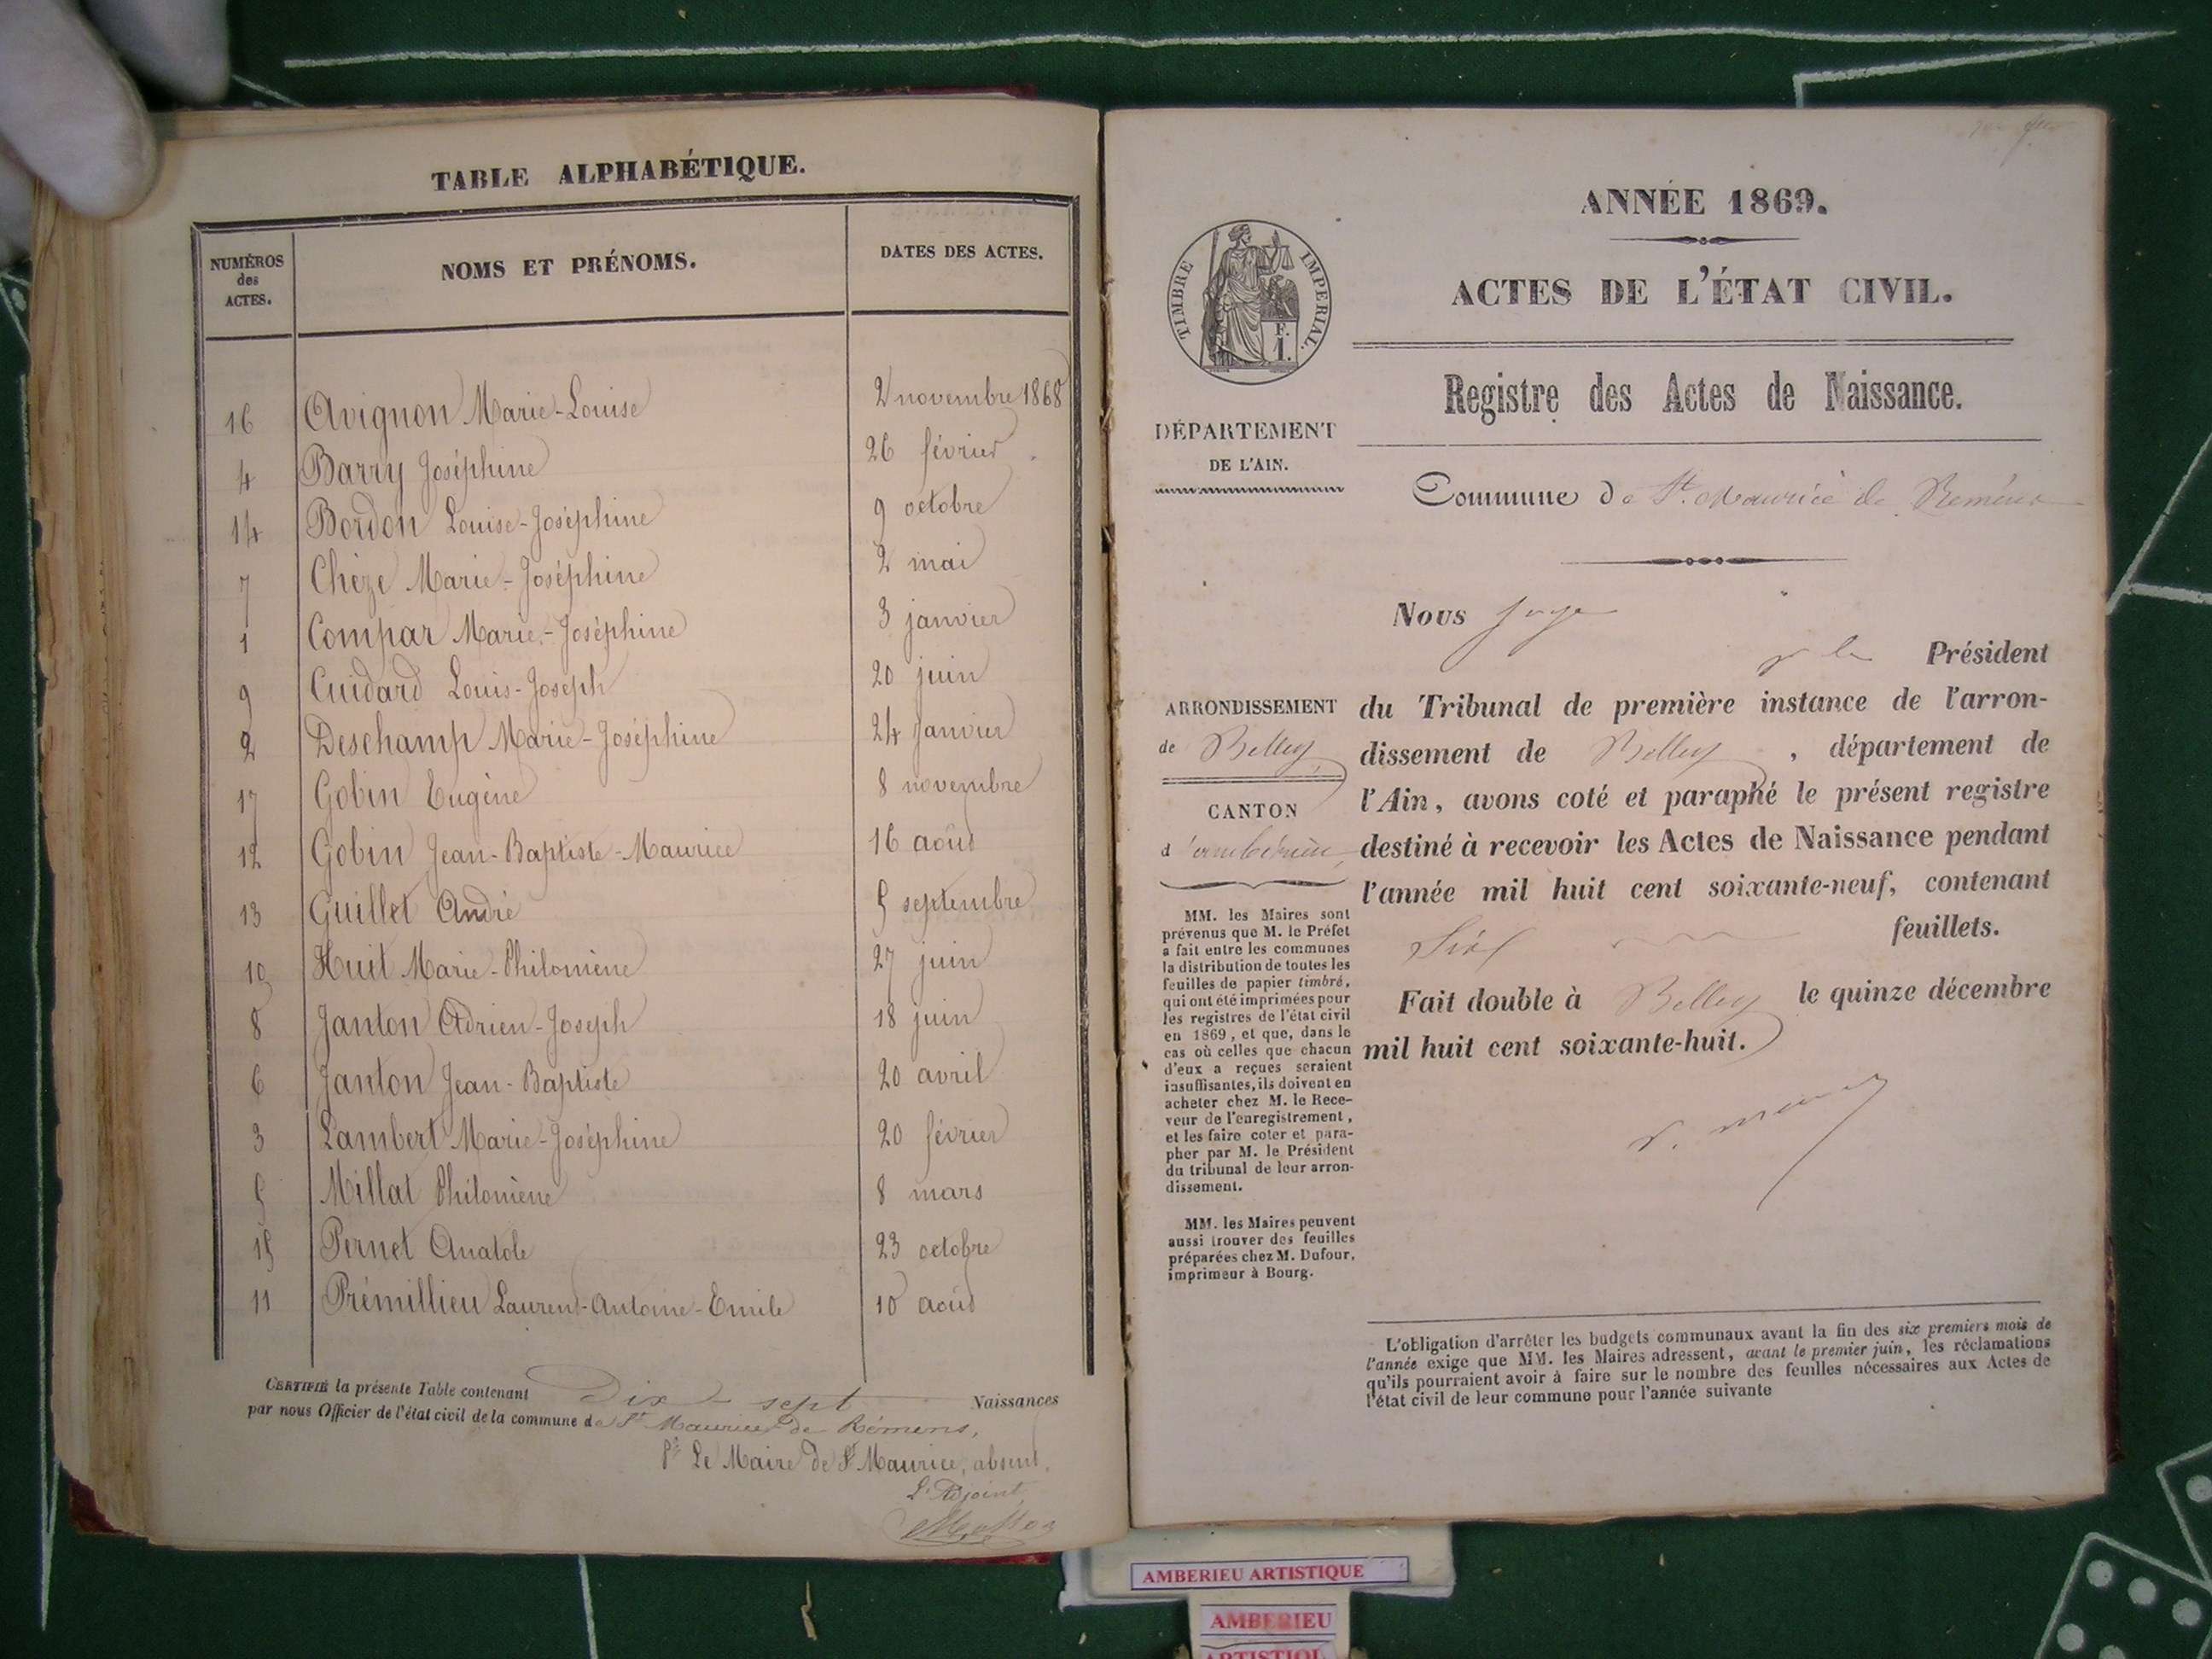 TABLE ALPHABÉTIQUE.
NUMÉROS des ACTES.
NOMS ET PRÉNOMS.
DATES DES ACTES.
16 Avignon Marie-Louise 2 novembre 1868
4 Barry Joséphine 26 février
14 Bordon Louise-Joséphine 9 octobre
7 Chèze Marie-Joséphine 2 mai
1 Compar Marie-Joséphine 3 janvier
9 Cuidard Louis-Joseph 20 juin
2 Deschamp Marie-Joséphine 24 janvier
17 Gobin Eugène 8 novembre
12 Gobin Jean-Baptiste-Maurice 16 août
13 Guillet André 5 septembre
10 Huit Marie-Philomène 27 juin
8 Janton Adrien-Joseph 18 juin
6 Janton Jean-Baptiste 20 avril
3 Lambert Marie-Joséphine 20 février
5 Millat Philomène 8 mars
15 Pernet Anatole 23 octobre
11 Prémillieu Laurent-Antoine-Emile 10 août
CERTIFIÉ la présente Table contenant Dix-sept Naissances
par nous Officier de l'état civil de la commune de St Maurice de Rémens,
Pr Le Maire de St Maurice, absent,
L'Adjoint,
ANNÉE 1869.
ACTES DE L'ÉTAT CIVIL.
TIMBRE IMPERIAL.
F.
1.
Registre des Actes de Naissance.
DÉPARTEMENT
DE L'AIN.
Commune de St. Maurice de Rémens
Nous juge
Président
du Tribunal de première instance de l'arron-
dissement de Belley, département de
l'Ain, avons coté et paraphé le présent registre
destiné à recevoir les Actes de Naissance pendant
l'année mil huit cent soixante-neuf, contenant
Six feuillets.
Fait double à Belley le quinze décembre
mil huit cent soixante-huit.
ARRONDISSEMENT
de Belley
CANTON
d'ambérieu
MM. les Maires sont
prévenus que M. le Préfet
a fait entre les communes
la distribution de toutes les
feuilles de papier timbré,
qui ont été imprimées pour
les registres de l'état civil
en 1869, et que, dans le
cas où celles que chacun
d'eux a reçues seraient
insuffisantes, ils doivent en
acheter chez M. le Rece-
veur de l'enregistrement,
et les faire coter et para-
pher par M. le Président
du tribunal de leur arron-
dissement.
MM. les Maires peuvent
aussi trouver des feuilles
préparées chez M. Dufour,
imprimeur à Bourg.
L'obligation d'arrêter les budgets communaux avant la fin des six premiers mois de
l'année exige que MM. les Maires adressent, avant le premier juin, les réclamations
qu'ils pourraient avoir à faire sur le nombre des feuilles nécessaires aux Actes de
l'état civil de leur commune pour l'année suivante
AMBERIEU ARTISTIQUE
AMBERIEU
ARTISTIQUE